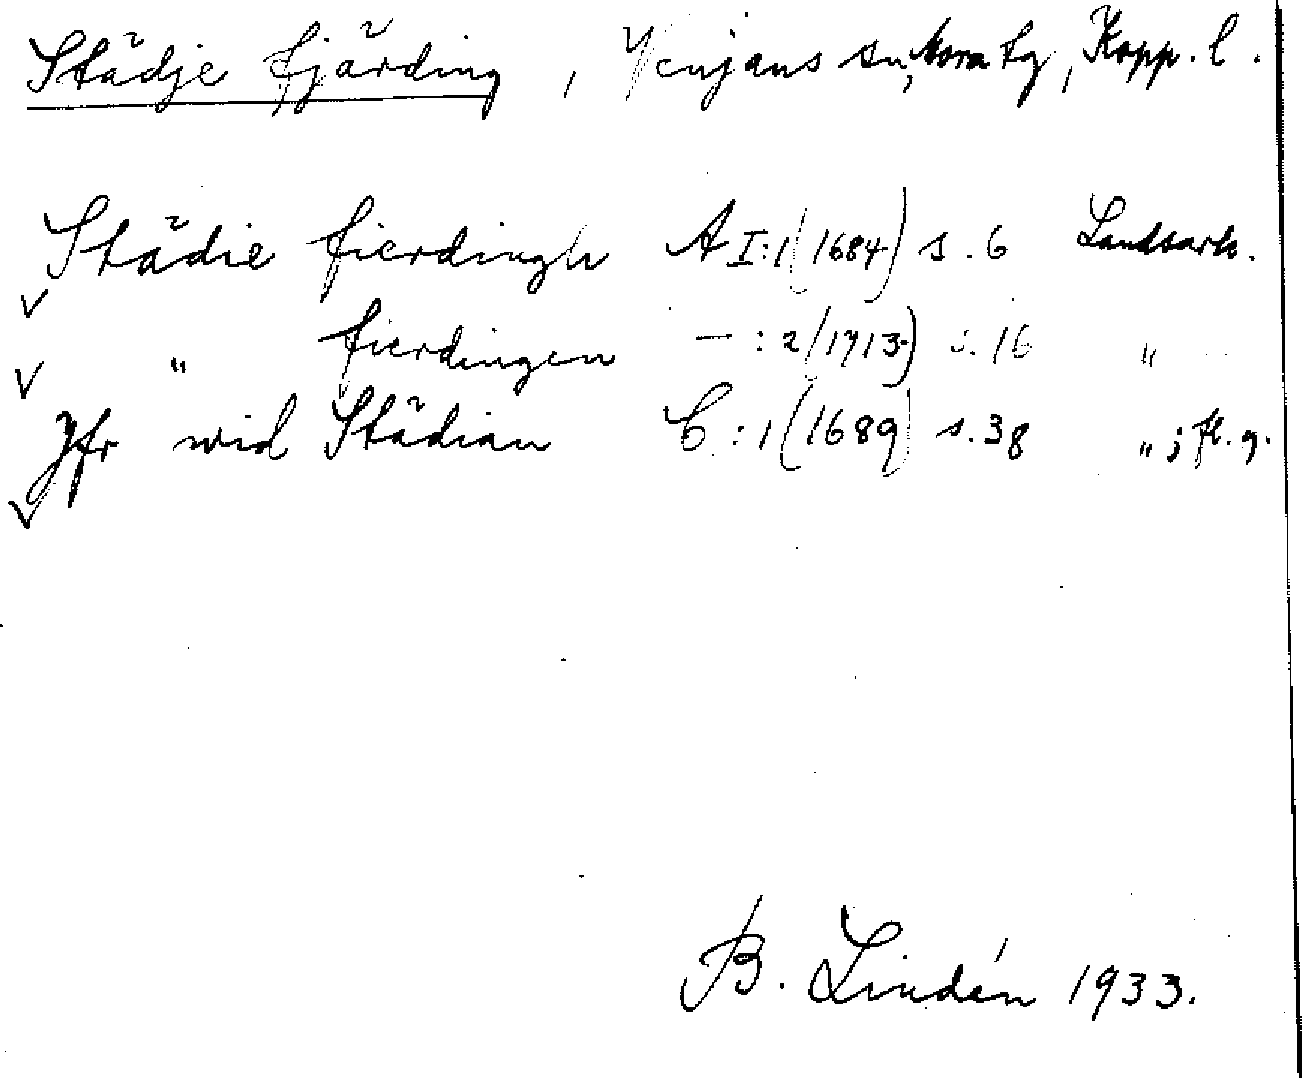 Städje fjärding, Venjans sn, Mora tg, Kopp. l.
Städie fierdingh A I:1 (1684) s. 6 Landsark.
√ " fierdingen — : 2 (1713) s. 16 "
√ Jfr wid Städian C : 1 (1689) s. 38 " ; fl. g.
√
B. Lindén 1933.